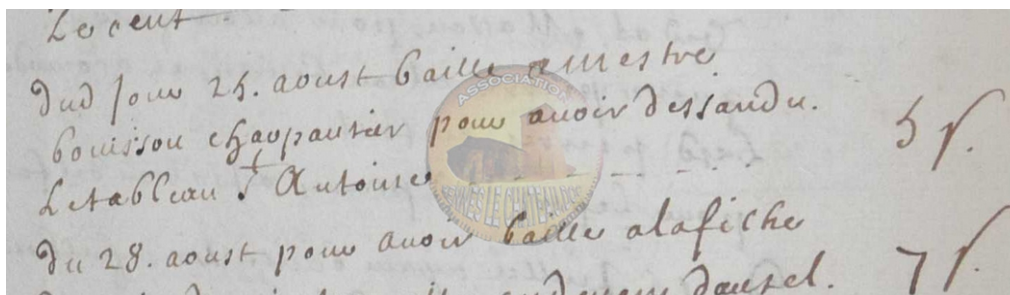 Le cent.
dud jour 25. aoust baille a mestre
bouissou charpantier pour avoir dessandu. 5 s.
Letableau St Antoine
du 28. aoust pour avoir baille alafiche 7 s.
dautel.
ASSOCIATION
RENNES LE CHATEAU DOC